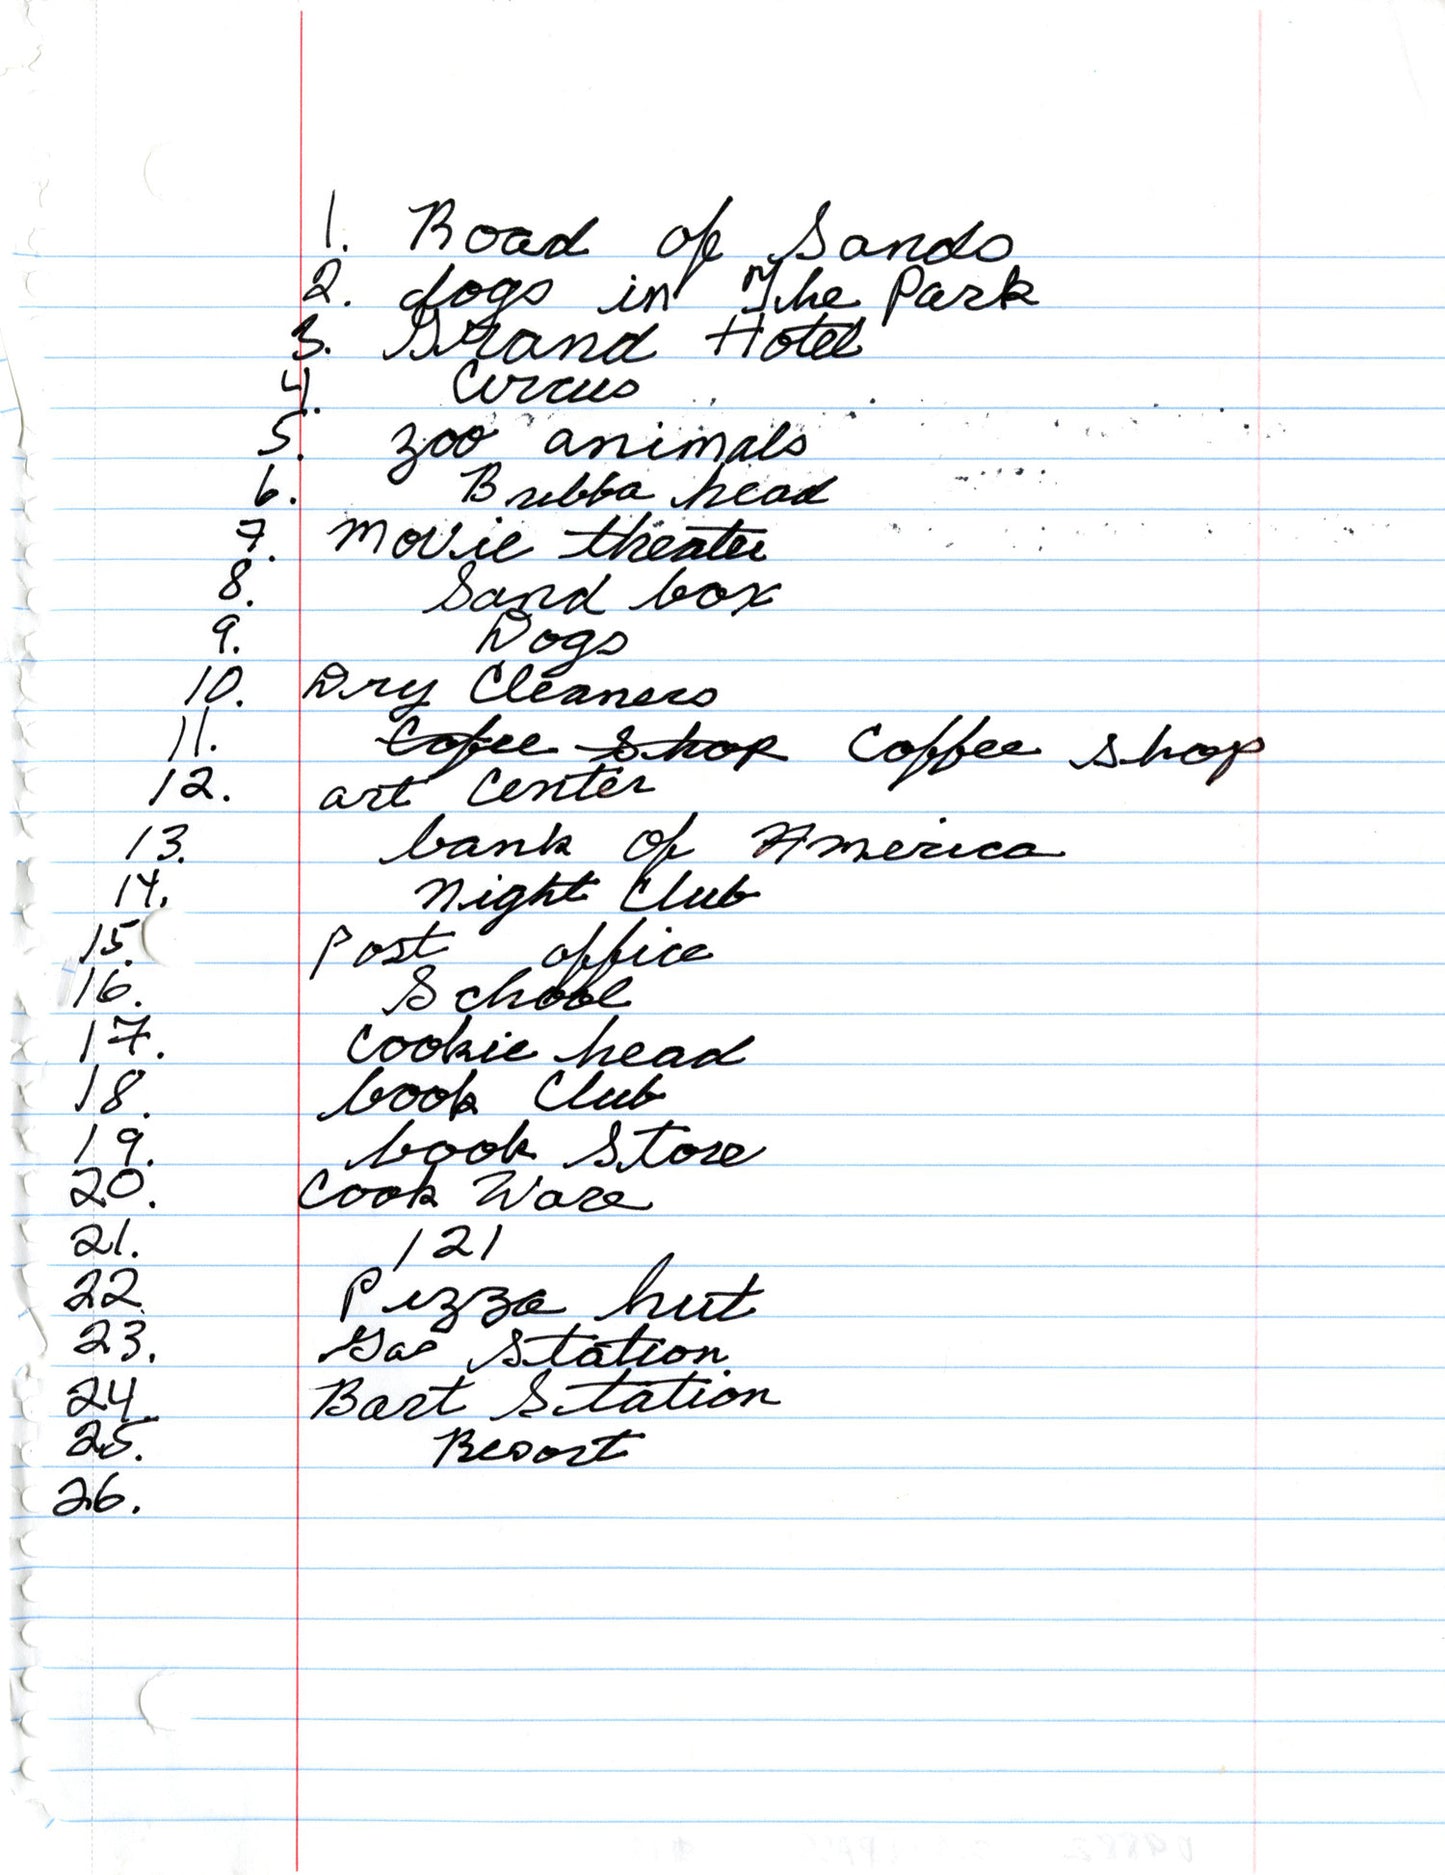 1. Road of Sands
2. dogs in The Park
3. Grand Hotel
4. Circus
5. zoo animals
6. Bubba head
7. Movie theater
8. Sand box
9. Dogs
10. Dry Cleaners
11. Cofee Shop Coffee shop
12. art Center
13. bank of America
14. Night Club
15. Post office
16. School
17. Cookie head
18. book Club
19. book Store
20. Cook Ware
21. 121
22. Pizza hut
23. Gas Station
24. Bart Station
25. Resort
26.